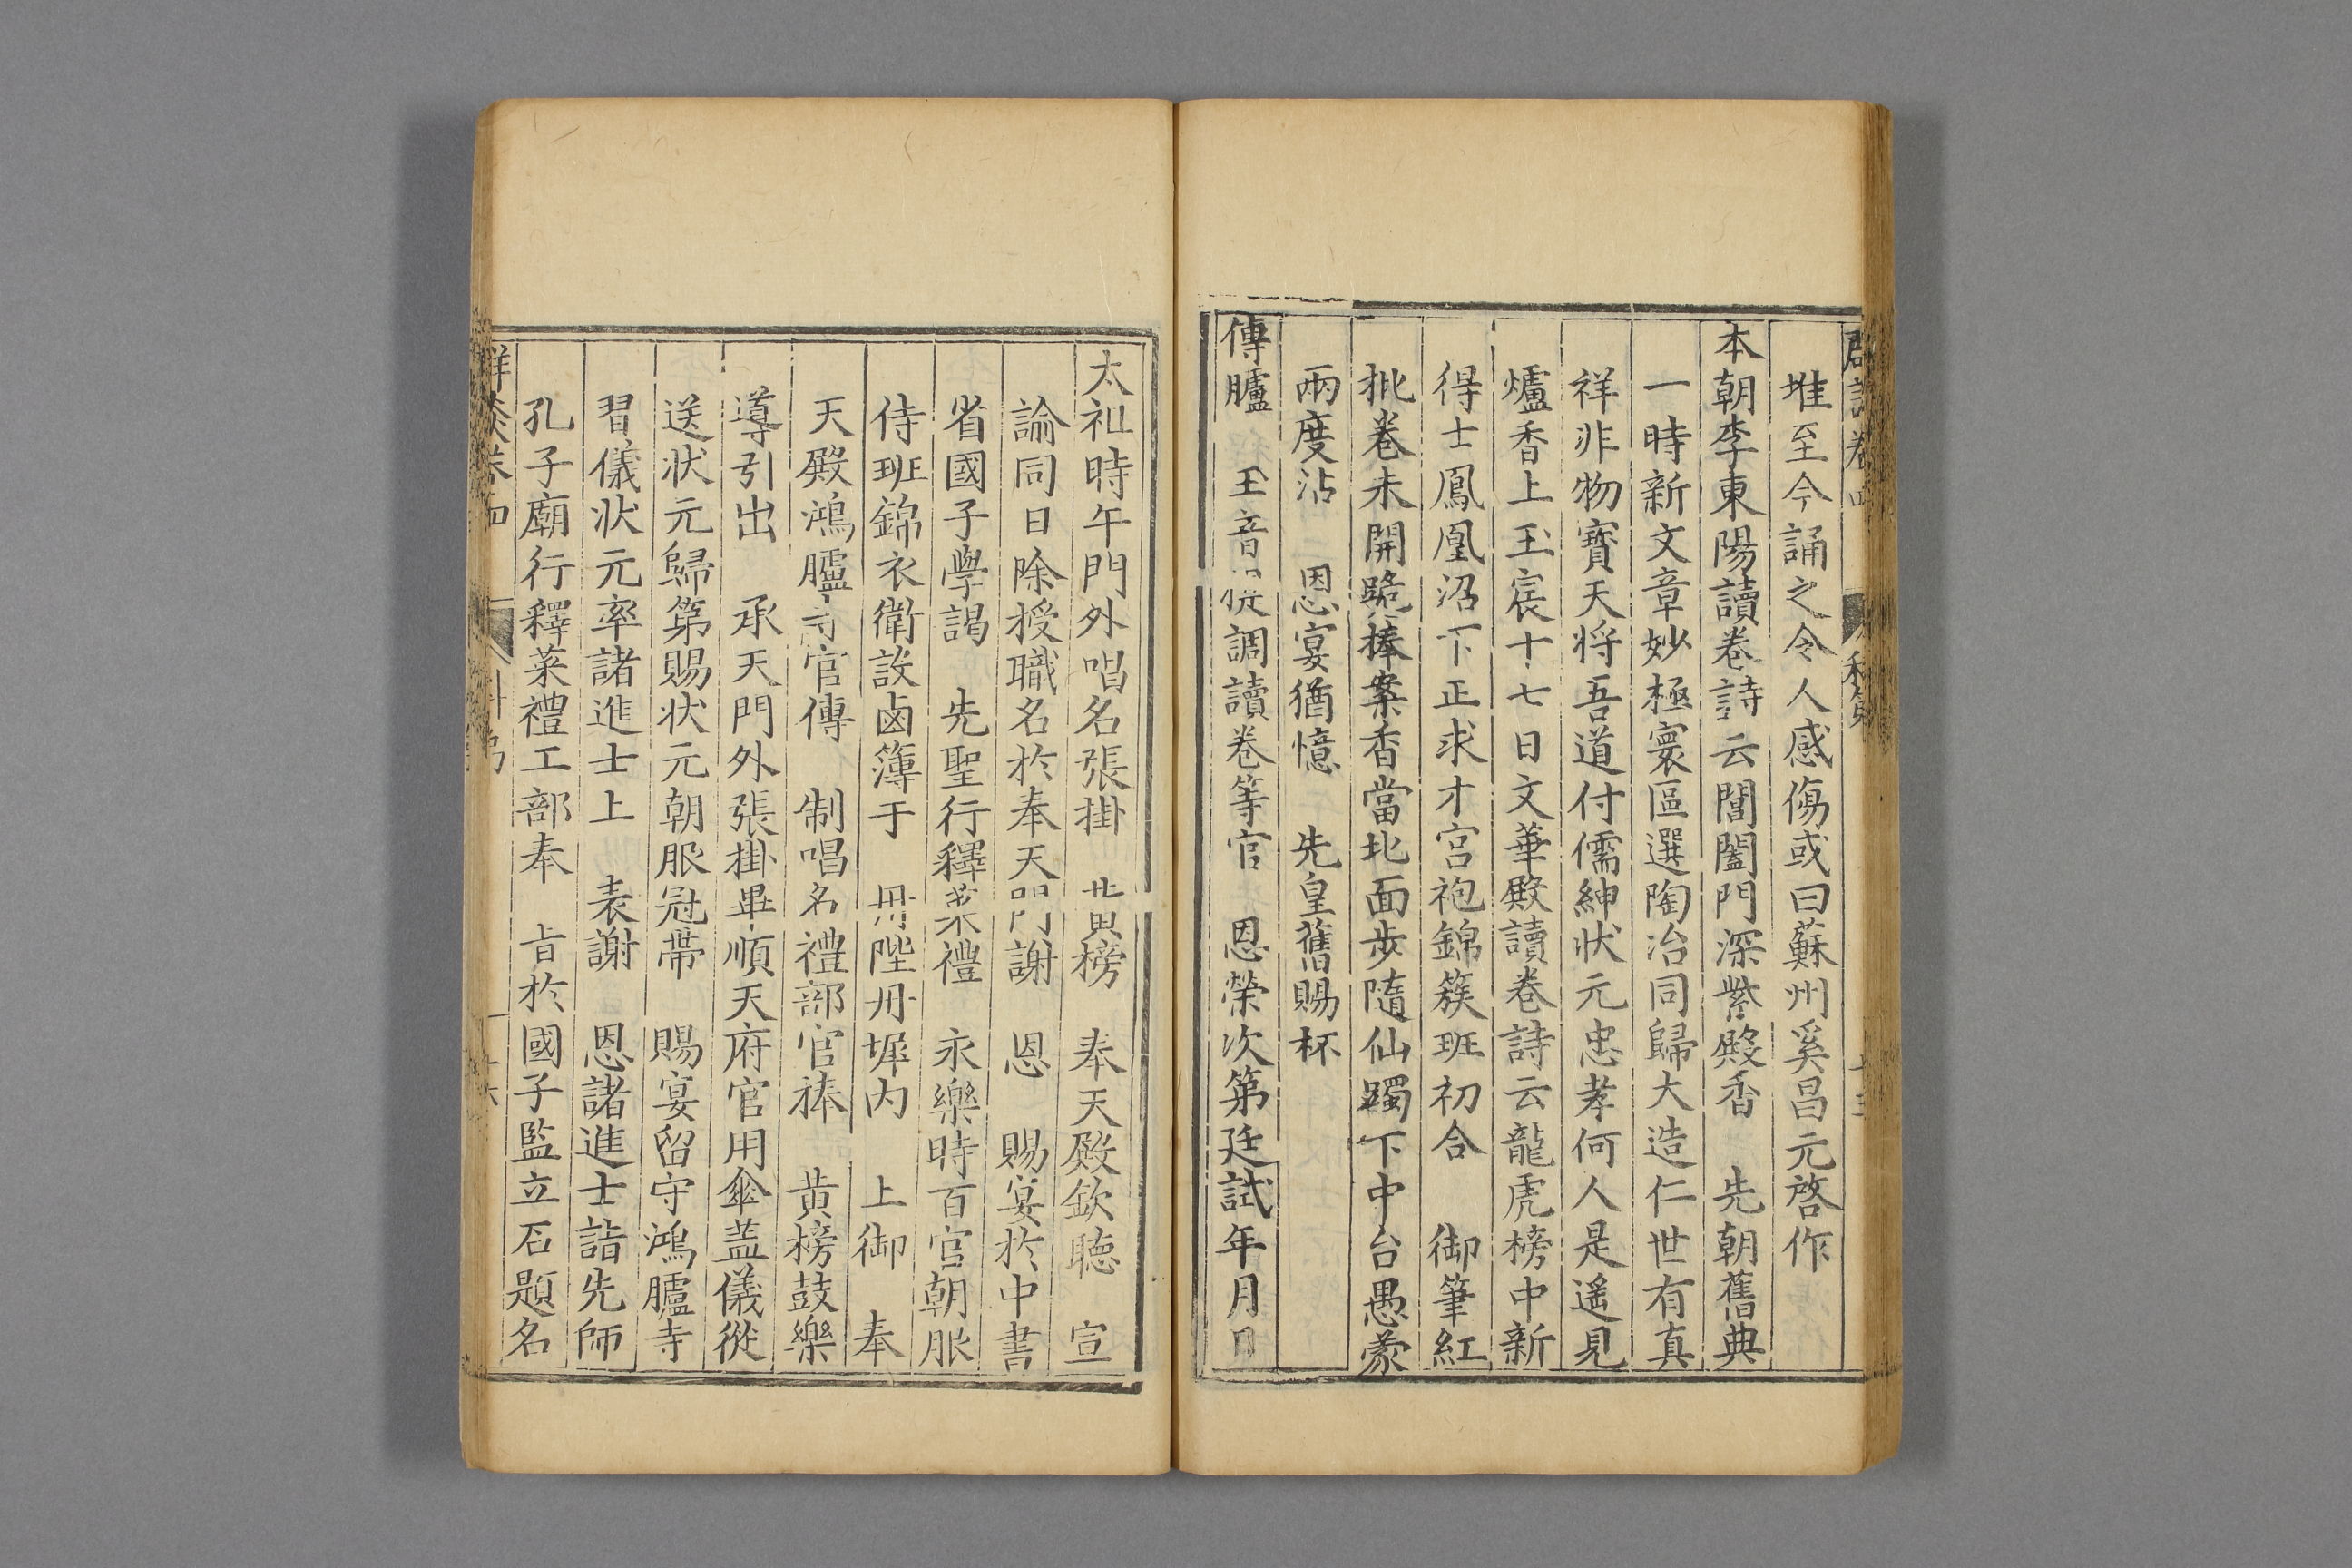 堆至今誦之令人感傷或曰蘇州奚昌元啓作
本朝李東陽讀卷詩云閶闔門深紫殿香　先朝舊典
一時新文章妙極寰區選陶冶同歸大造仁世有真
祥非物寶天將吾道付儒紳狀元忠孝何人是遙見
爐香上玉宸十七日文華殿讀卷詩云龍虎榜中新
得士鳳凰沼下正求才宮袍錦簇班初合　御筆紅
批卷未開跪捧案香當北面步隨仙躅下中台愚蒙
兩度沾　恩宴猶憶　先皇舊賜杯
傳臚　玉音　調讀卷等官　恩榮次第廷試年月日
太祖時午門外唱名張掛　黃榜　奉天殿欽聽　宣
諭同日除授職名於奉天門謝　恩　賜宴於中書
省國子學謁　先聖行釋菜禮　永樂時百官朝服
侍班錦衣衛設鹵簿于　丹陛丹墀內　上御　奉
天殿鴻臚寺官傳　制唱名禮部官捧　黃榜鼓樂
導引出　承天門外張掛畢順天府官用傘蓋儀從
送狀元歸第賜狀元朝服冠帶　賜宴留守鴻臚寺
習儀狀元率諸進士上　表謝　恩諸進士詣先師
孔子廟行釋菜禮工部奉　旨於國子監立石題名